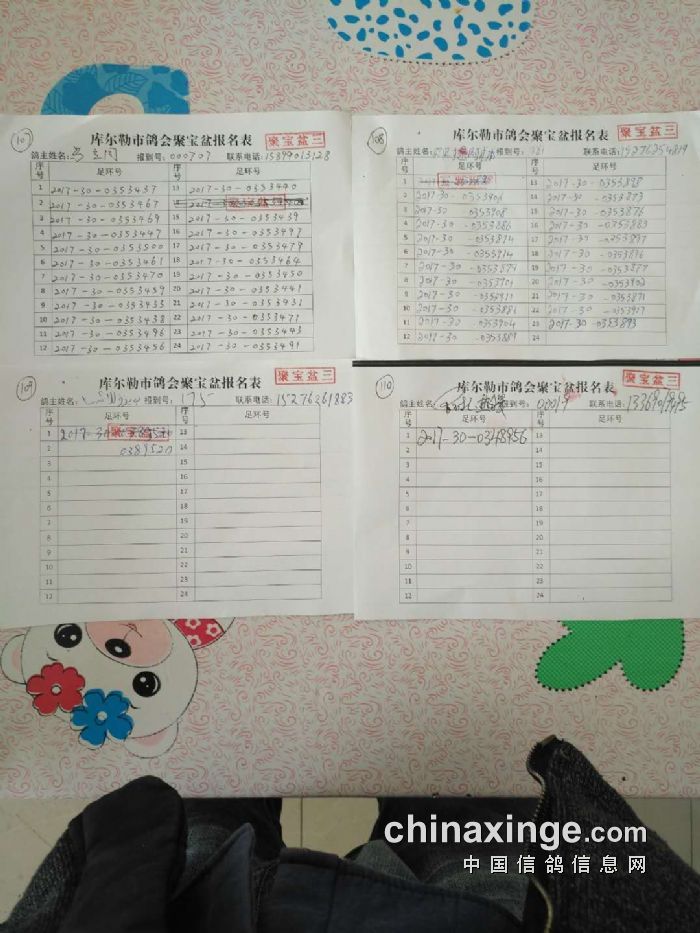 107
库尔勒市鸽会聚宝盆报名表
聚宝盆三
鸽主姓名: 报到号:000707 联系电话:15399013128
序号 足环号 序号 足环号
1 2017-30-0353437 13 2017-30-0353440
2 2017-30-0353467 14 2017-30
3 2017-30-0353469 15 2017-30-0353439
4 2017-30-0353447 16 2017-30-0353497
5 2017-30-0353500 17 2017-30-0353479
6 2017-30-0353461 18 2017-30-0353464
7 2017-30-0353470 19 2017-30-0353450
8 2017-30-0353459 20 2017-30-0353441
9 2017-30-0353435 21 2017-30-0353431
10 2017-30-0353438 22 2017-30-0353477
11 2017-30-0353496 23 2017-30-0353443
12 2017-30-0353456 24 2017-30-0353491
108
库尔勒市鸽会聚宝盆报名表
聚宝盆三
鸽主姓名: 报到号: 联系电话:15276254819
序号 足环号 序号 足环号
1 13 2017-30-0353898
2 2017-30- 14 2017-30-0353873
3 2017-30-0353908 15 2017-30-0353876
4 2017-30-0353886 16 2017-30-0353883
5 2017-30-0353914 17 2017-30-0353897
6 2017-30- 18 2017-30-0353896
7 2017-30-0353874 19 2017-30-0353877
8 2017-30-0353901 20 2017-30-0353902
9 2017-30-0353911 21 2017-30-0353871
10 2017-30- 22 2017-30-0353917
11 2017-30-0353904 23 2017-30-0353893
12 2017-30-0353889 24
109
库尔勒市鸽会聚宝盆报名表
聚宝盆三
鸽主姓名: 报到号:175 联系电话:15276261283
序号 足环号 序号 足环号
1 2017-30 13
2 0389520 14
3 15
4 16
5 17
6 18
7 19
8 20
9 21
10 22
11 23
12 24
110
库尔勒市鸽会聚宝盆报名表
聚宝盆三
鸽主姓名: 报到号: 联系电话:
序号 足环号 序号 足环号
1 2017-30-0348956 13
2 14
3 15
4 16
5 17
6 18
7 19
8 20
9 21
10 22
11 23
12 24
chinaxinge.com
中国信鸽信息网